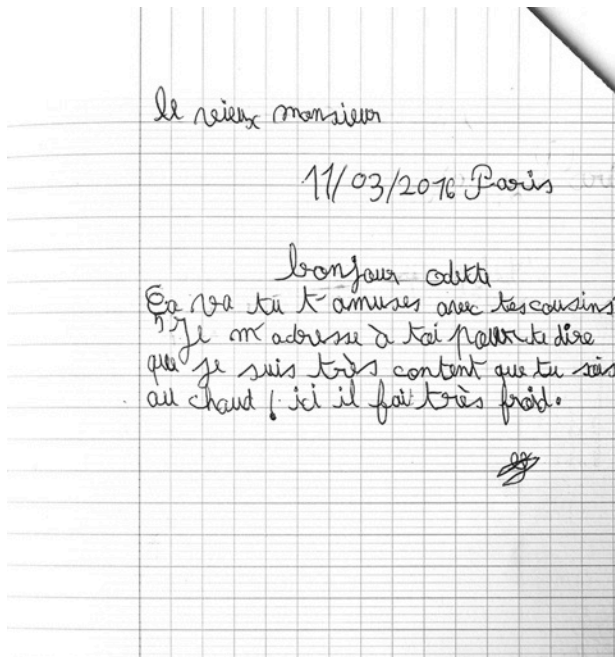 le vieux monsieur
11/03/2016 Paris
bonjour odette
Ça va tu t'amuses avec tes cousins
? Je m'adresse à toi pour te dire
que je suis très content que tu sois
au chaud ! ici il fait très froid.